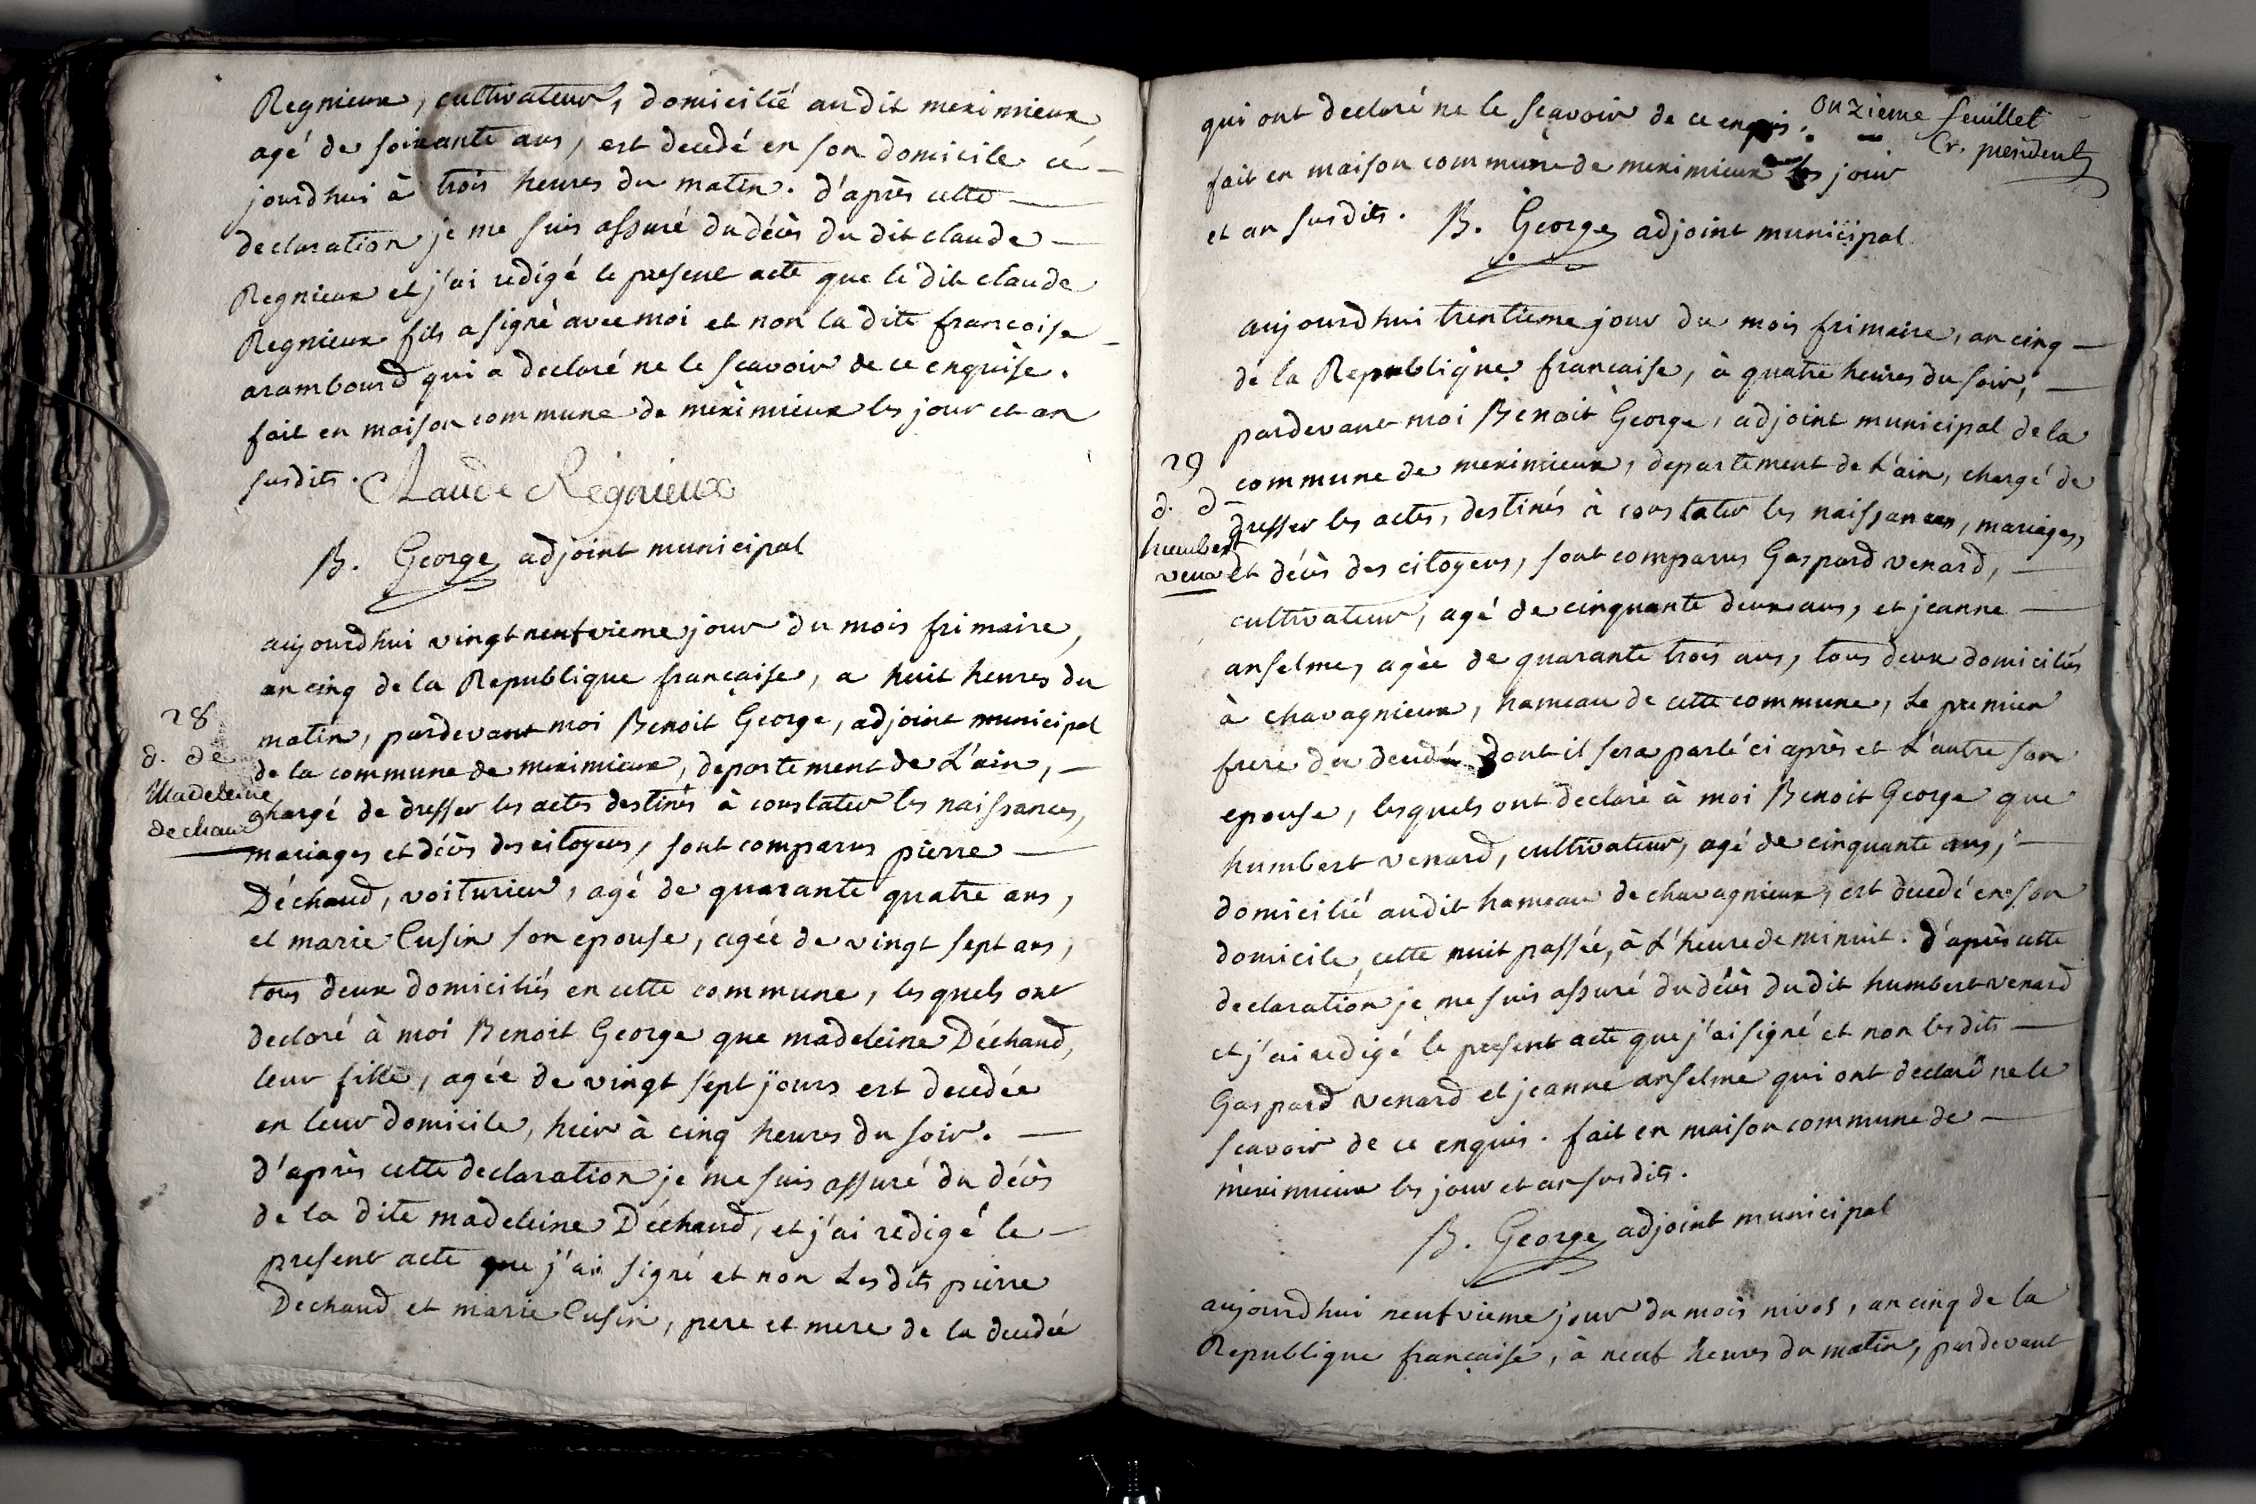 Regnieux, cultivateur, domicilié audit meximieux
agé de soixante ans, est decedé en son domicile ce-
jourd'hui à trois heures du matin. d'après cette
declaration je me suis assuré du décès du dit claude
Regnieux et j'ai redigé le present acte que le dit claude
Regnieux fils a signé avec moi et non la dite francoise
arambourd qui a declaré ne le scavoir de ce enquise.
fait en maison commune de meximieux les jour et an
susdits. Claude Régnieux
B. George adjoint municipal
28
d. de
Madeleine
dechaud
aujourdhui vingt neufvieme jour du mois frimaire,
an cinq de la Republique française, a huit heures du
matin, pardevant moi Benoit George, adjoint municipal
de la commune de meximieux, departement de L'ain,
chargé de dresser les actes destinés à constater les naissances,
mariages et décès des citoyens, sont comparus pierre
Déchaud, voiturier, agé de quarante quatre ans,
et marie Cusin son epouse, agée de vingt sept ans,
tous deux domiciliés en cette commune, lesquels ont
declaré à moi Benoit George que madeleine Déchaud,
leur fille, agée de vingt sept jours est decedée
en leur domicile, hier à cinq heures du soir.
d'après cette declaration je me suis assuré du décès
de la dite madeleine Déchaud, et j'ai redigé le
present acte que j'ai signé et non Lesdits pierre
Dechaud et marie Cusin, pere et mere de la decedée
onzieme feuillet
Cr. president
qui ont declaré ne le scavoir de ce enquis.
fait en maison commune de meximieux les jour
et an susdits. B. George adjoint municipal
29
d. d
humbert
venard
aujourdhui trentieme jour du mois frimaire, an cinq
de la Republique francaise, à quatre heures du soir,
pardevant moi Benoit George, adjoint municipal de la
commune de meximieux, departement de L'ain, chargé de
dresser les actes, destinés à constater les naissances, mariages,
et décès des citoyens, sont comparus Gaspard venard,
cultivateur, agé de cinquante deux ans, et jeanne
anselme, agée de quarante trois ans, tous deux domiciliés
à chavagnieux, hameau de cette commune, Le premier
frere du decedé dont il sera parlé ci après et L'autre son
epouse, lesquels ont declaré à moi Benoit George que
humbert venard, cultivateur, agé de cinquante ans,
domicilié audit hameau de chavagnieux, est decedé en son
domicile, cette nuit passée, à L'heure de minuit. d'après cette
declaration je me suis assuré du décès du dit humbert venard
et j'ai redigé le present acte que j'ai signé et non lesdits
Gaspard venard et jeanne anselme qui ont declaré ne le
scavoir de ce enquis. fait en maison commune de
meximieux les jour et an susdits.
B. George adjoint municipal
aujourdhui neufvieme jour du mois nivos, an cinq de la
Republique française, à neuf heures du matin, pardevant